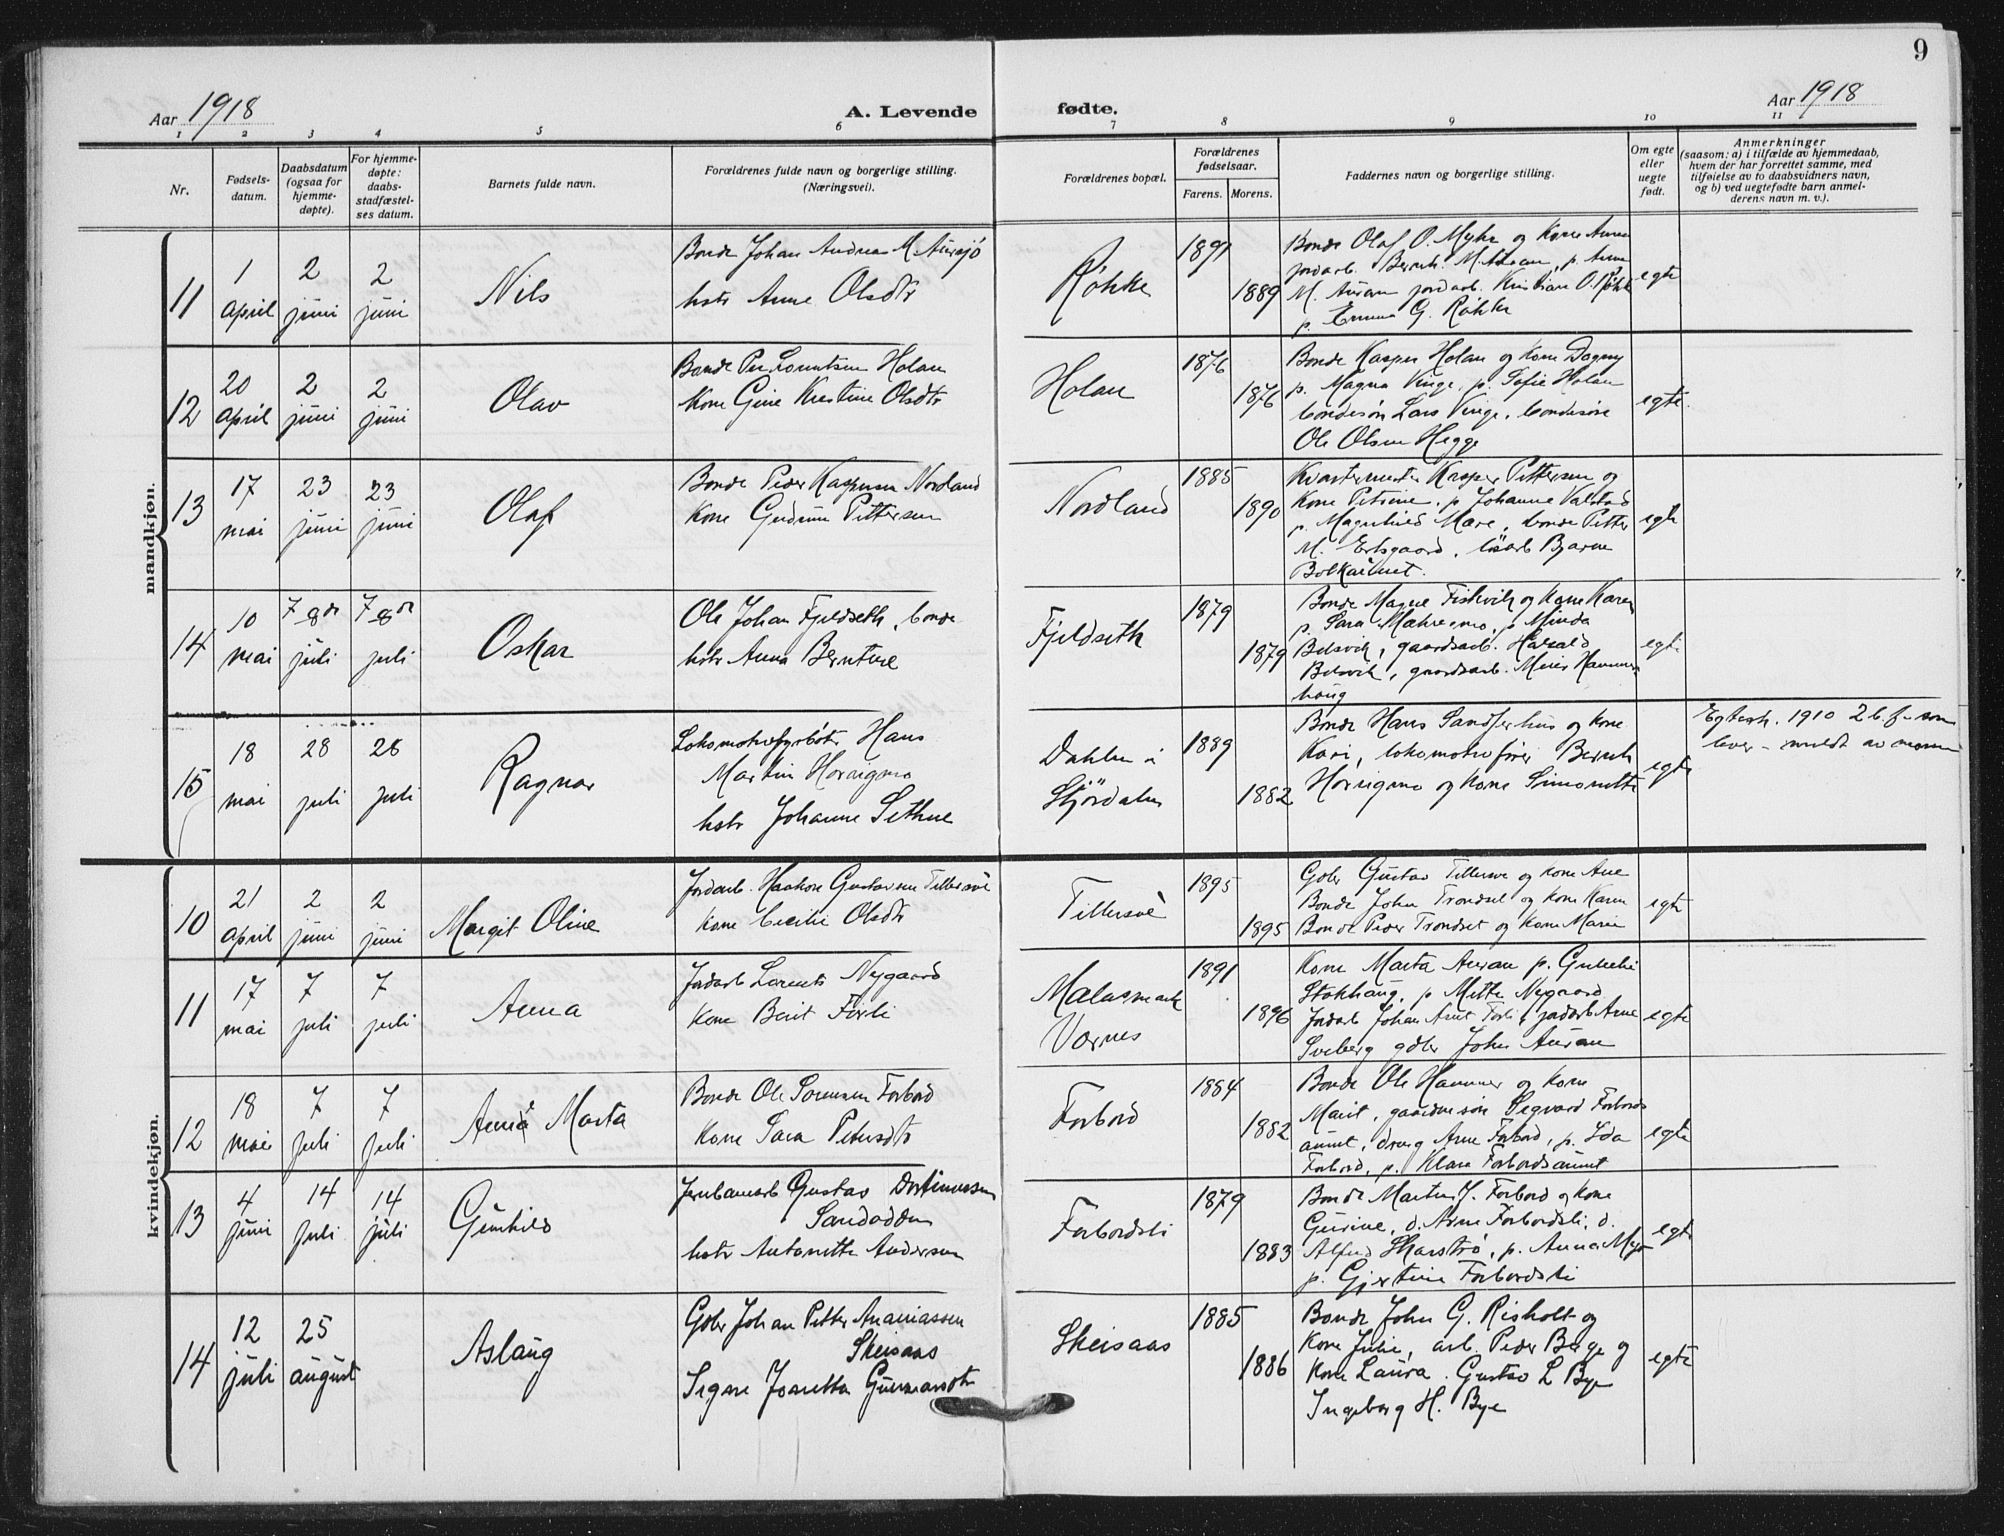 9
Aar 1918
A. Levende
fødte.
Aar 1918
1 2 3 4 5 6 7 8 9 10 11
Nr.
Fødsels-
datum.
Daabsdatum
(ogsaa for
hjemme-
døpte).
For hjemme-
døpte:
daabs-
stadfæstel-
ses datum.
Barnets fulde navn.
Forældrenes fulde navn og borgerlige stilling.
(Næringsvei).
Forældrenes bopæl.
Forældrenes
fødselsaar.
Farens. Morens.
Faddernes navn og borgerlige stilling.
Om egte
eller
uegte
født.
Anmerkninger
(saasom: a) i tilfælde av hjemmedaab,
hvem der har forrettet samme, med
tilføielse av to daabsvidners navn,
og b) ved uegtefødte barn anmel-
derens navn m. v.).
mandkjøn.
11
1
april
2
juni
2
juni
Nils
Bonde Johan Andreas M. Aursjø
hstr Anne Olsdtr
Røkke
1891
1889
Bonde Olaf O. Myhr og Kone
jordarb. Bernh. M. p. Anne
M. Auran jordarb. Kristian O. Røkke
p. Emma G. Røkke
egte
12
20
april
2
juni
2
juni
Olav
Bonde Per Lorentsen Holan
Kone Gine Kristine Olsdtr
Holan
1876
1876
Bonde Kasper Holan og Kone Dagny
p. Magna Vinge, p. Sofie Holan
bondesøn Lars Vinge, bondesøn
Ole Olsen Hegge
egte
13
17
mai
23
juni
23
juni
Olaf
Bonde Peder Kaspersen Nordland
Kone Gudrun Pettersen
Nordland
1885
1890
Kvartermester Kasper Pettersen og
Kone Petrine, p Johanne Valstad
p. Magnhild Mære, bonde Petter
M. Ertsgaard, løsarb Bjarne
egte
14
10
mai
7-8de
juli
7-8de
juli
Oskar
Ole Johan Fjeldseth, bonde
hstr Anna Berntine
Fjeldseth
1879
1879
Bonde Magne Fiskvik og Kone Karen
p. Sara Mæhresmo, p Minda
Belsvik, gaardsarb. Harald
Belsvik, gaardsarb. Meier Hammer-
haug
egte
15
18
mai
28
juli
28
juli
Ragnar
Lokomotivfyrbøter Hans
Martin
hstr Johanne Sethne
Dahlen i
Stjørdalen
1889
1882
Bonde Hans Sandferhus og kone
Kari, lokomotivfører Bernh
og Kone
egte
Egtesk. 1910 2 b. f. som
lever – meldt av moren
kvindekjøn.
10
21
april
2
juni
2
juni
Margit Oline
Jordarb. Haakon Gustavsen Tillersve
Kone Cecilie Olsdtr
Tillersve
1895
1895
Gbr Gustav Tillersve og Kone Ane
Bonde John Trondset og Kone Karen
Bonde Peder Trondset og Kone Marie
egte
11
17
mai
7
juli
7
juli
Anna
Jordarb Lorents Nygaard
Kone Berit Forli
Værnes
1891
1896
Kone Marta Auran p. Gunelie
Stokhaug, p Mette Nygaard
Jordarb Johan Arnt Forli, jordarb Arne
Sveberg gbr John Auran
egte
12
18
mai
7
juli
7
juli
Anne Marta
Bonde Ole Sørensen Forbord
Kone Sara Petersdtr
Forbord
1884
1882
Bonde Ole Hammer og Kone
Marit, gaardmsøn Segvard Forbords-
aunet, dreng Arne Forbord, p. Ida
Forbord, p. Klara Forbordsaunet
egte
13
4
juni
14
juli
14
juli
Gunhild
Jernbanearb Gustav
Sandodden
hstr Antonette Andersen
Forbordsli
1879
1883
Bonde Martin J. Forbord og kone
Gurine, d. Arne Forbordsli, d.
Alfred Skarstrø, p. Anna Myr
p. Gjertine Forbordsli
egte
14
12
juli
25
august
Aslaug
Gbr Johan Petter Ananiassen
Skeisaas
Signe Josetta Gunnarsdtr
Skeisaas
1885
1886
Bonde John G. Risholt og
Kone Julie, arb. Peder Berge og
Kone Laura. Gustav L Bye
Ingeborg H. Bye
egte